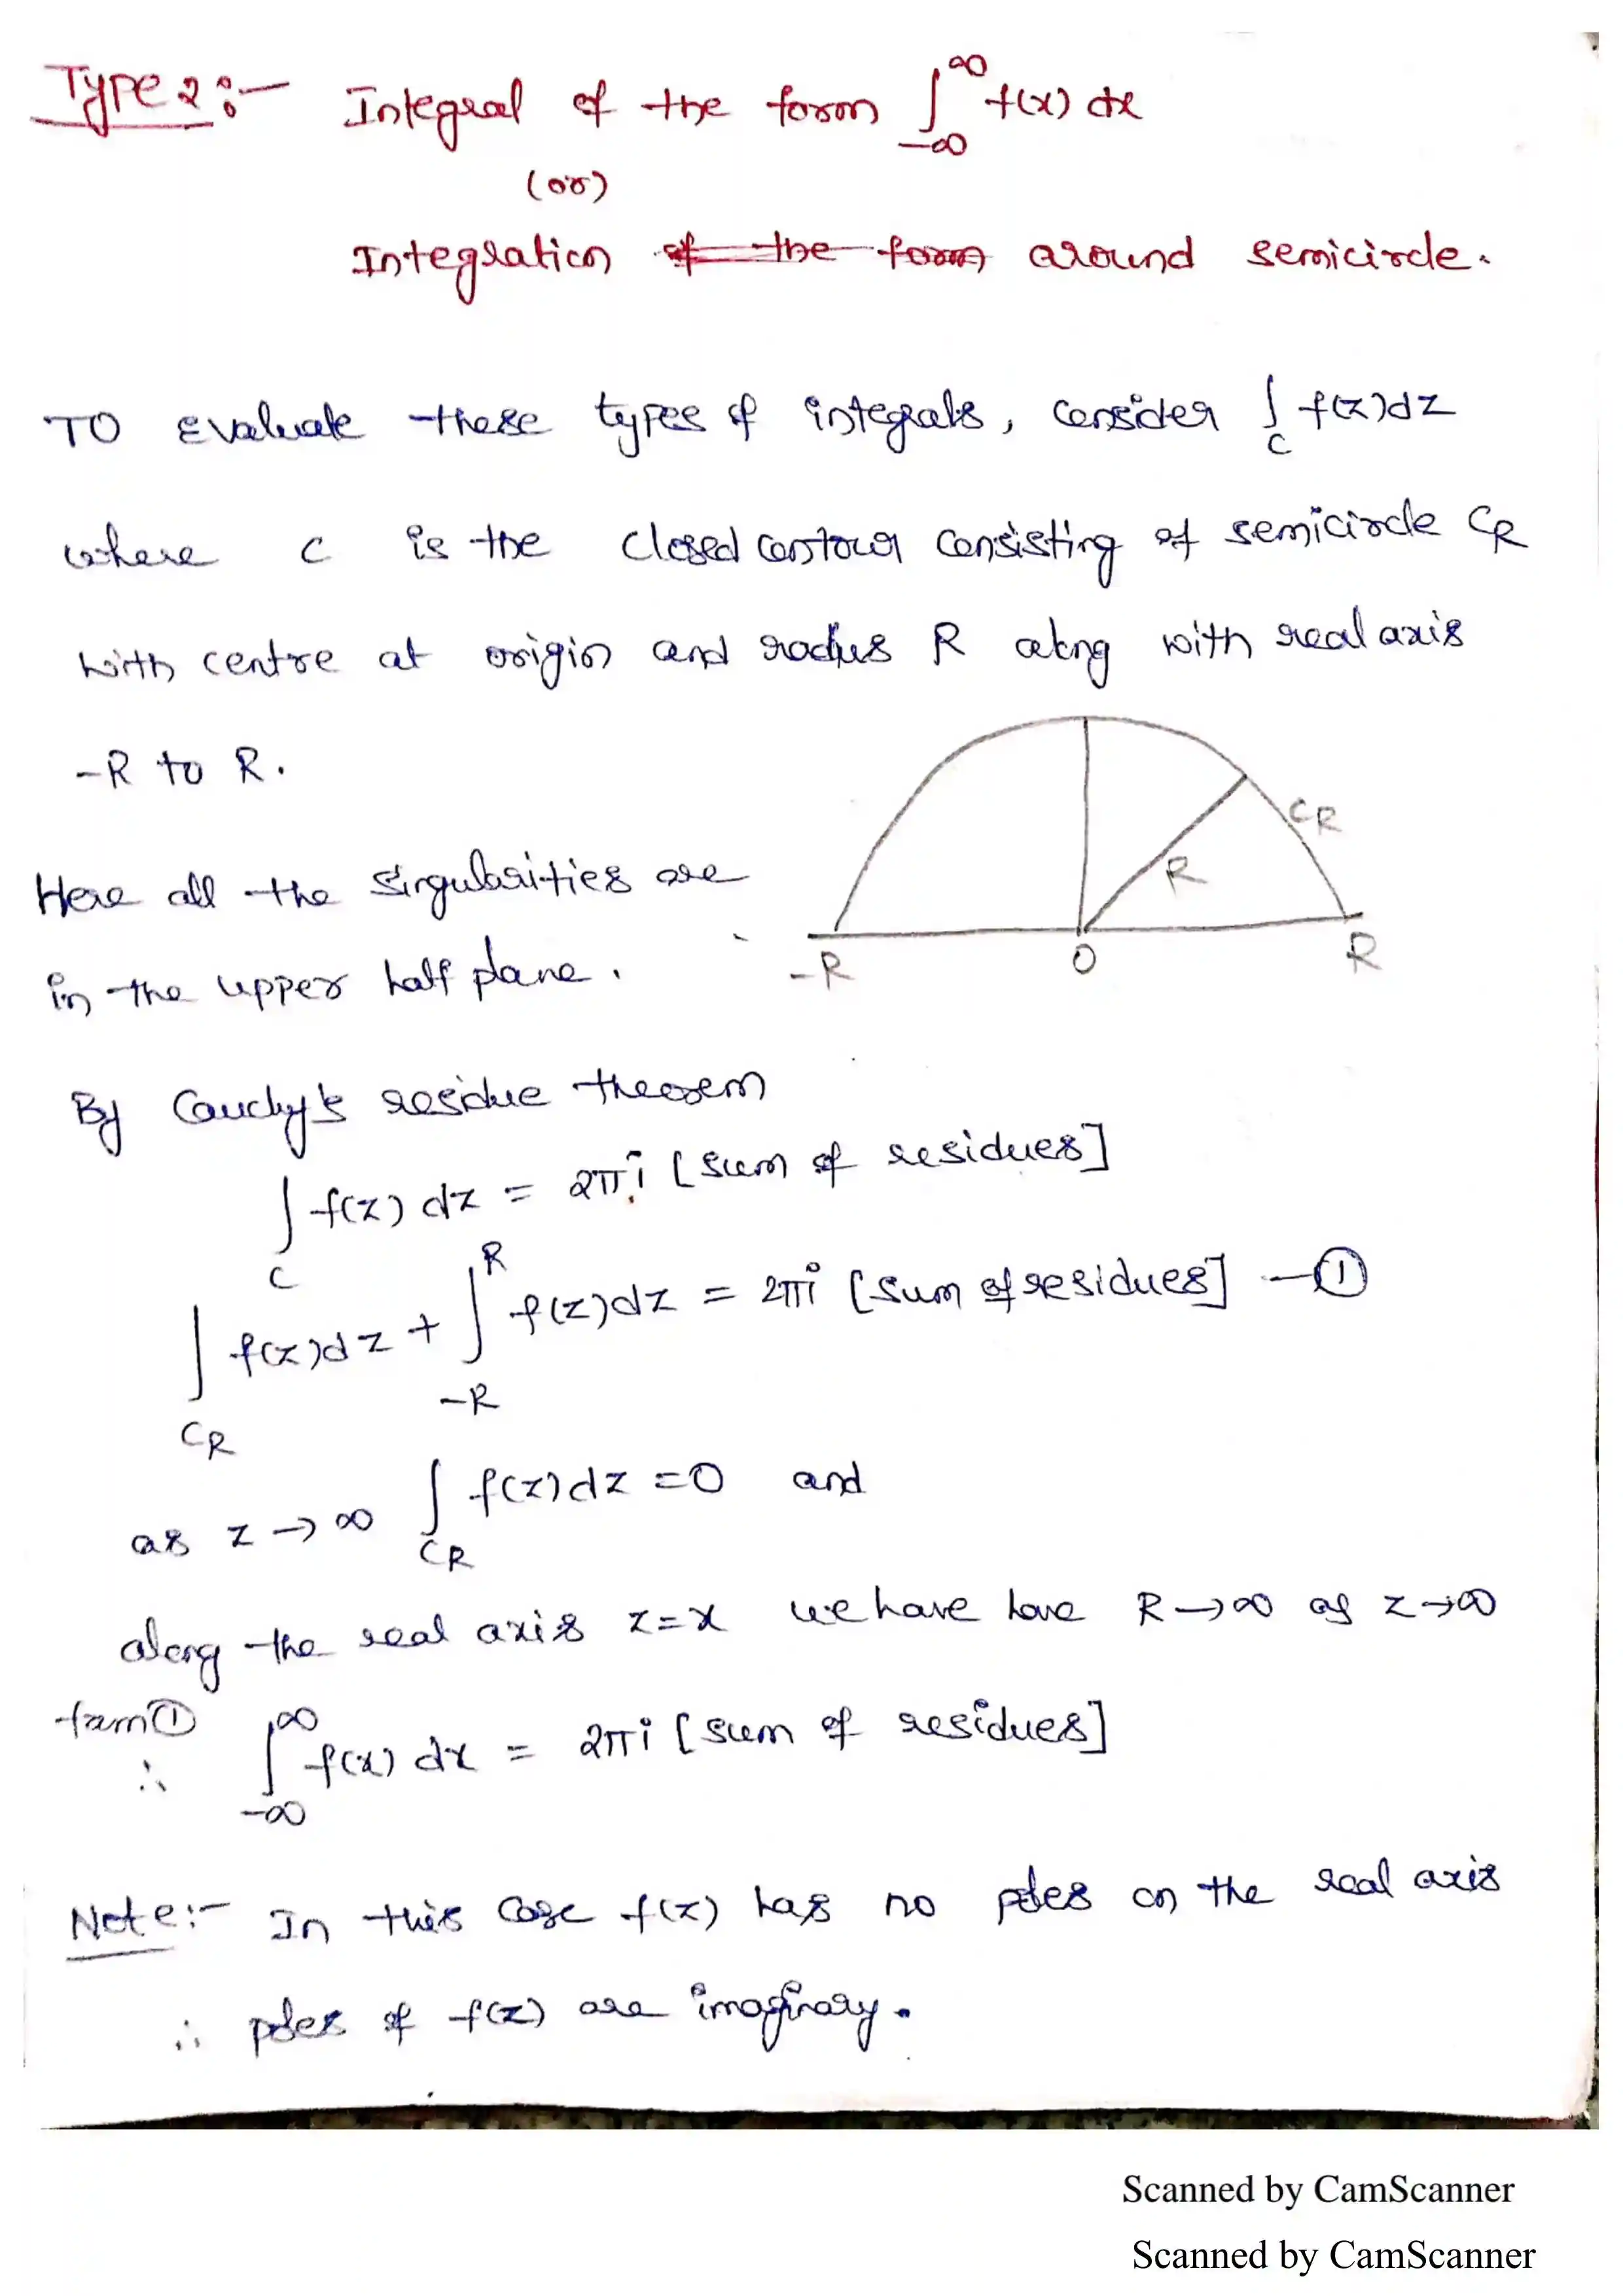 Type 2 :- Integral of the form ∫_{-∞}^{∞} f(x) dx
(or)
Integration of the form around semicircle.
To Evaluate these types of integrals, consider ∫_C f(z)dz
where C is the closed contour consisting of semicircle C_R
with centre at origin and radius R along with real axis
-R to R.
C_R
R
-R O R
Here all the singularities are
in the upper half plane.
By Cauchy's residue theorem
∫_C f(z) dz = 2πi [sum of residues]
∫_{C_R} f(z)dz + ∫_{-R}^{R} f(z)dz = 2πi [sum of residues] —①
as z → ∞ ∫_{C_R} f(z)dz = 0 and
along the real axis z=x we have have R→∞ as z→∞
from ①
∴ ∫_{-∞}^{∞} f(x) dx = 2πi [sum of residues]
Note:- In this case f(z) has no poles on the real axis
∴ poles of f(z) are imaginary.
Scanned by CamScanner
Scanned by CamScanner